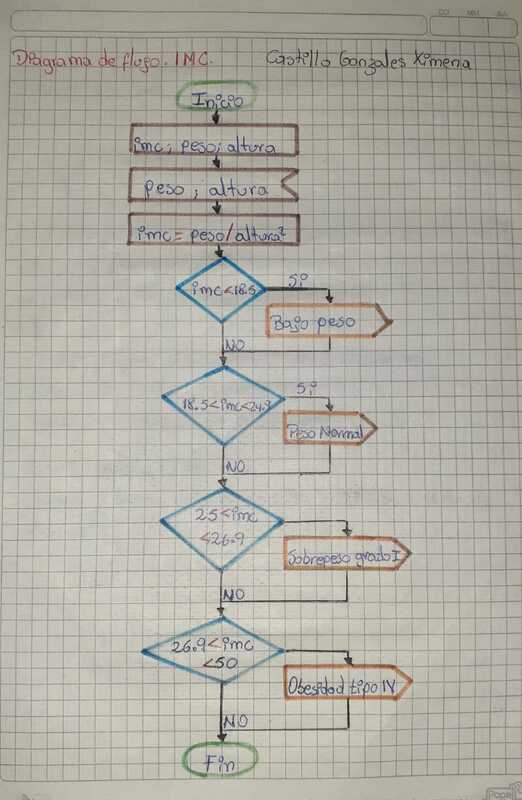 Diagrama de flujo. IMC. Castillo Gonzales Ximena
Inicio
imc; peso; altura
peso ; altura
imc= peso/altura²
imc<18.5
Si
Bajo peso
NO
18.5<imc<24.9
Si
Peso Normal
NO
25<imc
<26.9
Sobrepeso grado I
NO
26.9<imc
<50
Obesidad tipo IV
NO
Fin